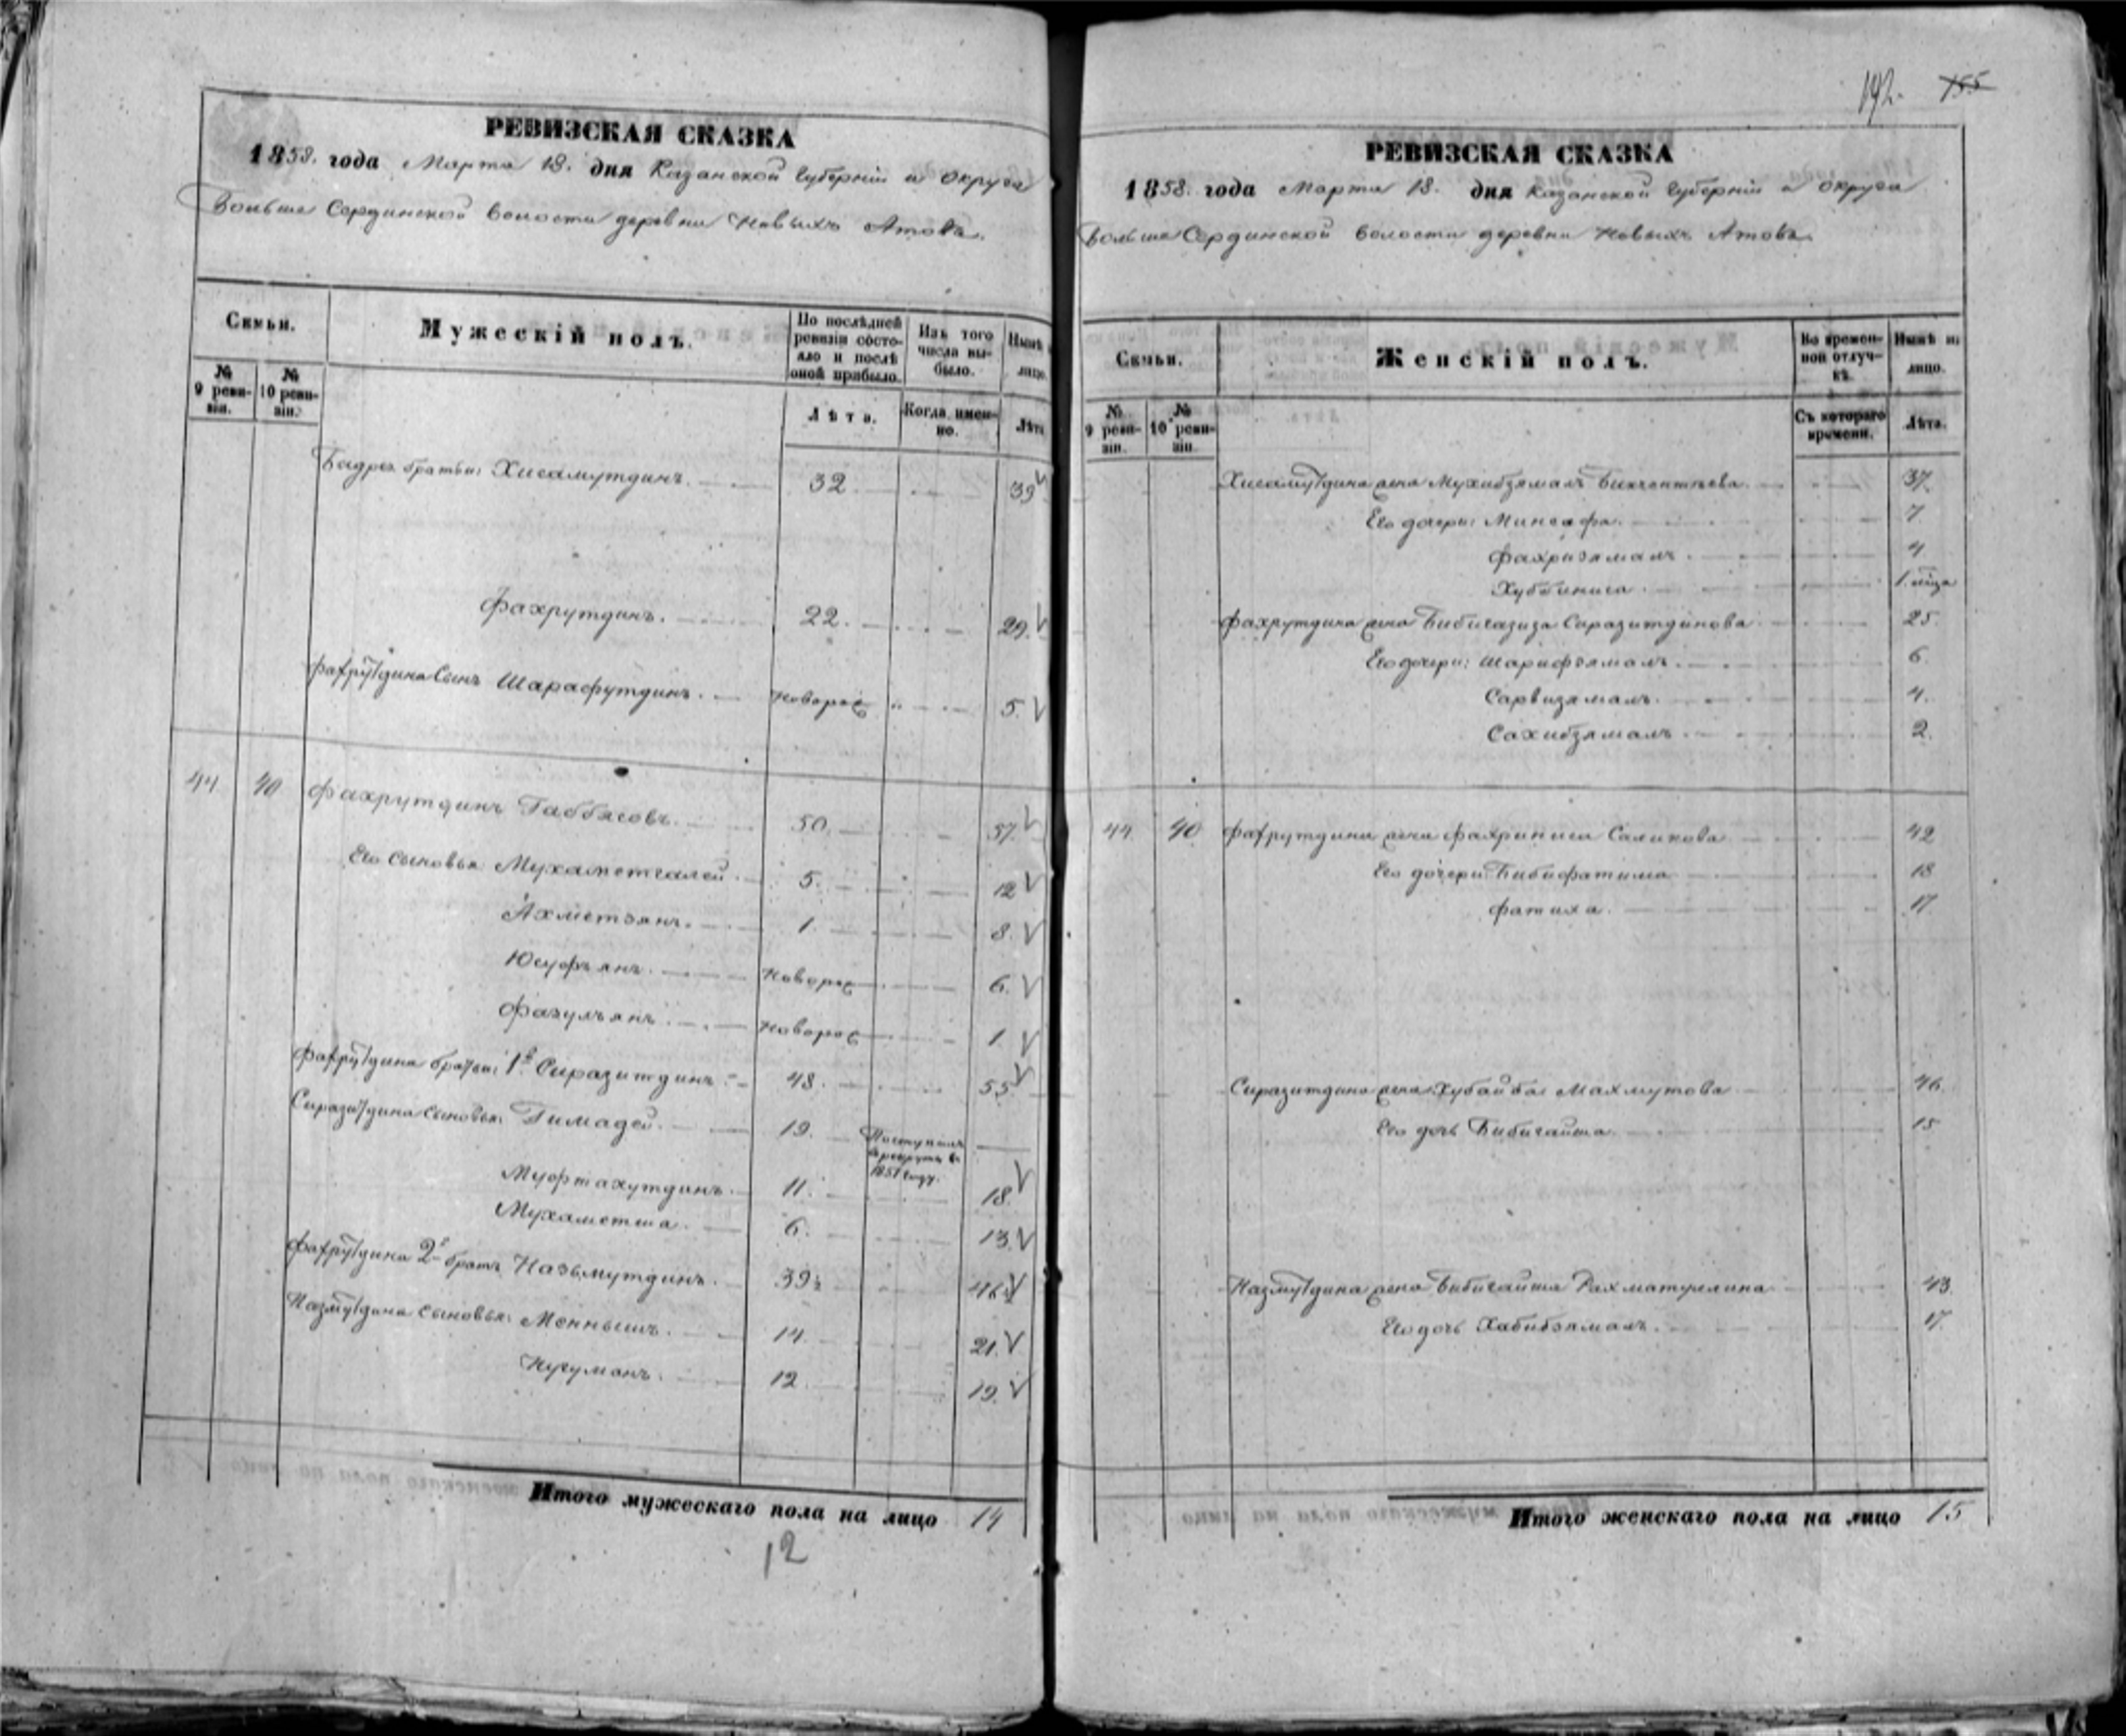 192. 155
РЕВИЗСКАЯ СКАЗКА
1858. года Марта 18. дня Казанской Губерніи и округа
Больше Сординской волости деревни Новыхъ Атовъ.
Семьи.
Мужескій полъ.
По послѣдней ревизіи состояло и послѣ оной прибыло.
Изъ того числа выбыло.
Нынѣ
лицо.
№ 9 ревизіи.
№ 10 ревизіи.
Лѣта.
Когда именно.
Лѣта
Бадра братья: Хисамутдинъ. 32 39
Фахрутдинъ. 22. 29.
Фахрутдина Сынъ Шарафутдинъ. Новорож 5.
44 40 Фахрутдинъ Габбасовъ. 50. 57.
Его сыновья Мухаметгалей. 5. 12
Ахметзянъ. 1. 8.
Юсуфъянъ. Новорож 6.
Фазулъянъ. Новорож 1
Фахрутдина братья: 1й Сиразитдинъ 48. 55
Сиразитдина сыновья: Гимадей. 19. Поступилъ въ рекруты въ 1851 году.
Муфтахутдинъ. 11. 18.
Мухаметша. 6. 13.
Фахрутдина 2й братъ Назьмутдинъ. 39½ 46½
Назмутдина сыновья: Меннышъ. 14. 21.
Нугуманъ. 12 19.
Итого мужескаго пола на лицо 14
12
РЕВИЗСКАЯ СКАЗКА
1858. года Марта 18. дня Казанской Губерніи и округа
Больше Сординской волости деревни Новыхъ Атовъ
Семьи.
Женскій полъ.
Во временной отлучкѣ.
Нынѣ на лицо.
№ 9 ревизіи.
№ 10 ревизіи.
Съ котораго времени.
Лѣта.
Хисамутдина жена Мухибзямалъ Бикчентѣева 37.
Его дочери: Минсафа. 7
Фахризямалъ. 4
Хуббиниса. 1. мѣца
Фахрутдина жена Бибигазиза Сиразитдинова 25
Его дочери: Шарифзямалъ. 6.
Сарвизямалъ. 4.
Сахибзямалъ. 2.
44. 40. Фахрутдина жена Фахриниса Саликова 42
Его дочери Бибифатима 18
Фатиха. 17
Сиразитдина жена Хубайба Махмутова 46.
Его дочь Бибигайша 15
Назмутдина жена Бибигайша Рахматуллина 43.
Его дочь Хабибзямалъ. 17.
Итого женскаго пола на лицо 15